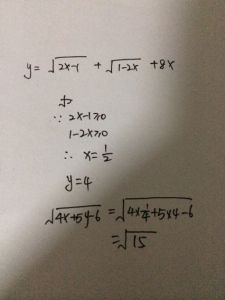 y = √2x-1 + √1-2x + 8x
∵ 2x-1≥0
1-2x≥0
∴ x = 1/2
y = 4
√4x+5y-6 = √4×1/4+5×4-6
= √15